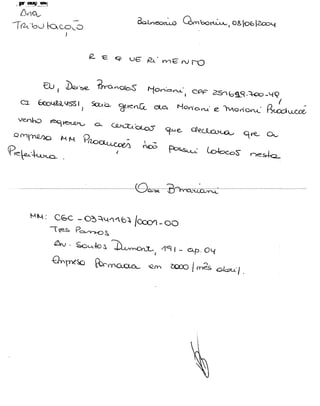 Ana
Tributação
Balneário Camboriú, 08/06/2004
REQUERIMENTO
EU, Deise Brandes Mariani, CPF 251699.700-49,
CI 6004824551, sócia gerente da Mariani e Mariani Producoes
venho requerer a certidão que declara que a
empresa MM Producoes não possui lotacao nesta
Prefeitura.
MM: CGC - 03741167/0001-00
Tres Passos
Av. Santos Dumont, 191 - ap. 04
Empresa formada em 2000/mês abril.